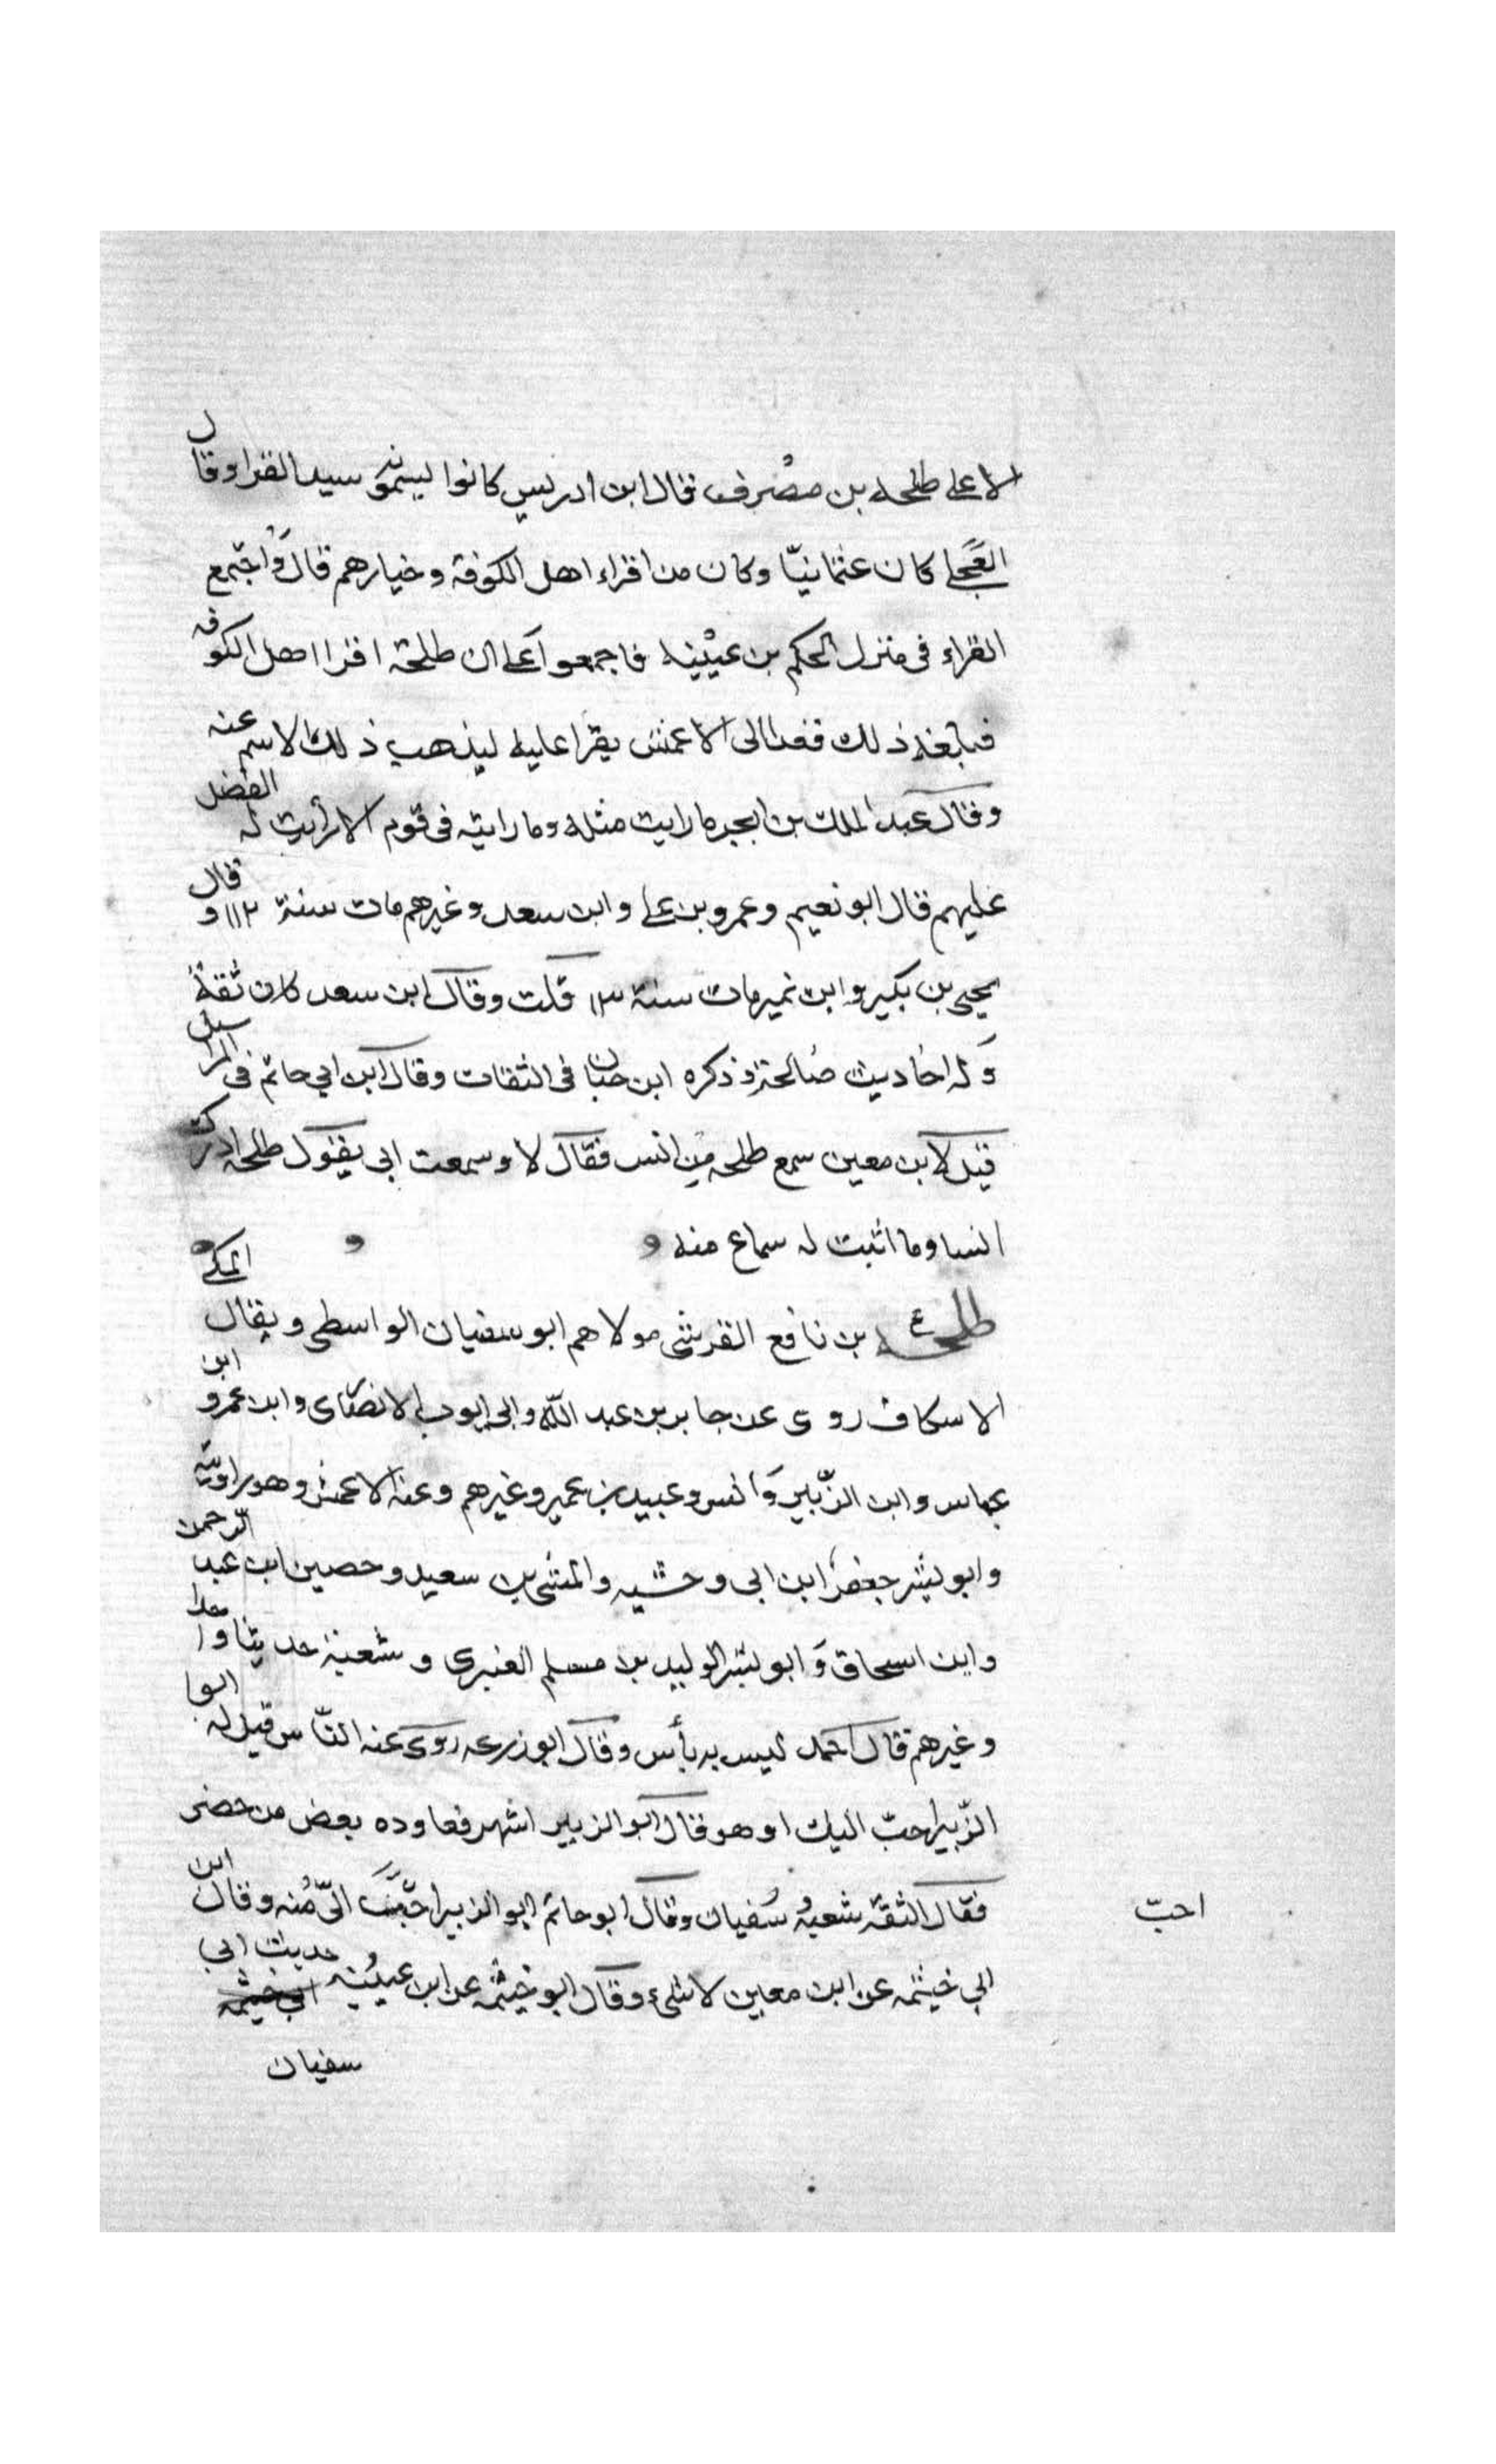 الا على طلحه بن مصرف قال ابن ادريس كانوا يسمونه سيد القرا وقال
العجلي كان عثمانيّا وكان من اقراء اهل الكوفة وخيارهم قال واجتمع
القراء فى منزل الحكم بن عيينه فاجمعوا على ان طلحة اقرا اهل الكوفه
فبلغه ذلك فغدا الى الاعمش يقرا عليه ليذهب ذلك الاسم عنه
وقال عبد الملك بن ابجر ما رايت مثله وما رايته فى قوم الا رأيت له الفضل
عليهم قال ابو نعيم وعمرو بن على وابن سعد وغيرهم مات سنة ١١٢ وقال
يحيى بن بكير وابن نمير مات سنة ١١٣ قلت وقال ابن سعد كان ثقةً
وَله احاديث صالحة وذكره ابن حبان فى الثقات وقال ابن ابي حاتم فى المراسيل
قيل لابن معين سمع طلحه من انس فقال لا وسمعت ابى يقول طلحه ادرك
انسا وما اثبت له سماع منه
طلحه ع بن نافع القرشى مولاهم ابو سفيان الواسطى ويقال المكي
الاسكاف روى عن جابر بن عبد اللّه وابى ايوب الانصارى وابن عمر وابن
عباس وابن الزّبير وَانس وعبيد بن عمير وغيرهم وعنه الاعمش وهو راويته
وابو بشر جعفر ابن ابى وحشيه والمثنى بن سعيد وحصين ابن عبد الرحمن
وابن اسحاق وَابو بشر الوليد بن مسلم العنبرى وشعبة حديثا واحدا
وغيرهم قال احمد ليس به بأس وقال ابو زرعه روى عنه النّاس قيل له ابوا
الزّبير احبّ اليك او هو قال ابو الزبير اشهر فعاوده بعض من حضر
فقال الثقة شعبه وسُفيان وقال ابو حاتم ابو الزبير احبّ الىّ منه وقال ابن
احبّ
ابي خيثمه عن ابن معين لا شىء وقال ابو خيثمه عن ابن عيينه حديث ابي
سفيان